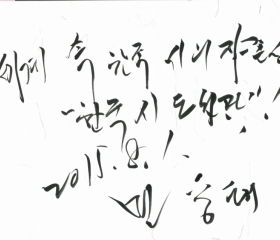 세계 속 한국 시의 자존심
한국시 도서관!
2015. 8. 1.
민용태